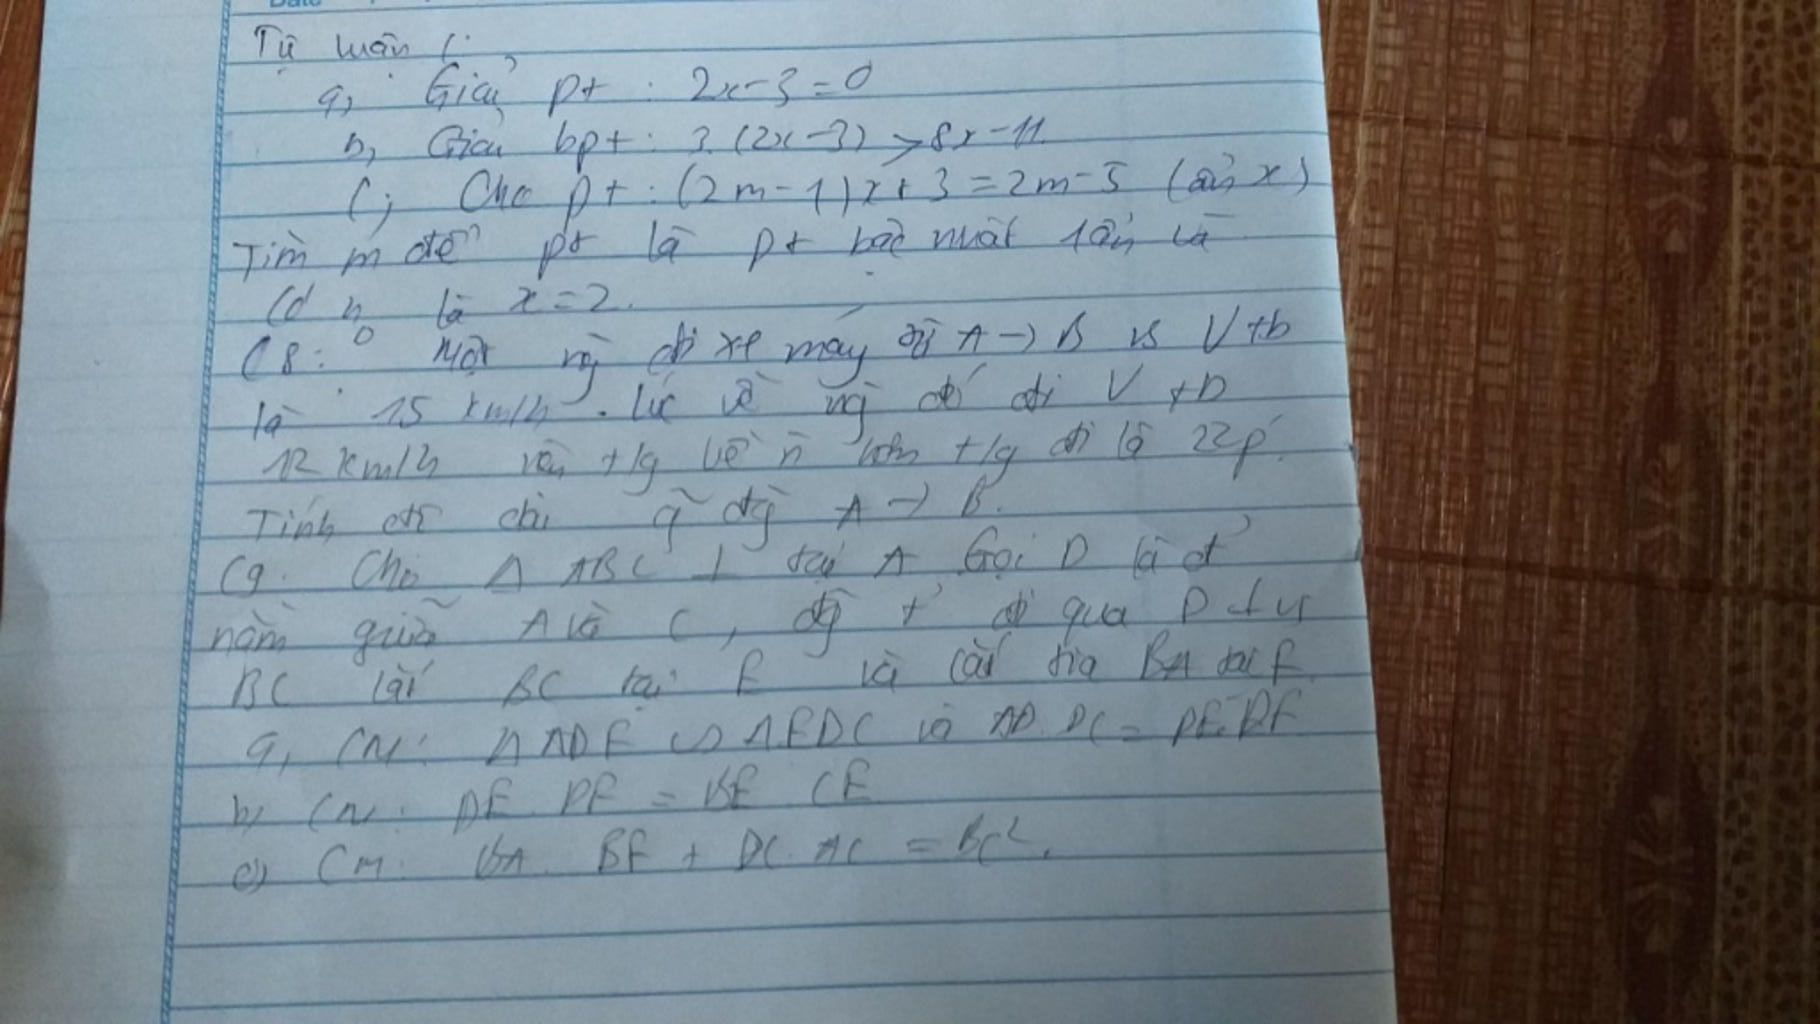 Date
Tự luận
a, Giải pt : 2x-3=0
b, Giải bpt : 3.(2x-3) > 8x-11
C; Cho pt : (2m-1)x+3=2m-5 (ẩn x)
Tìm m để pt là pt bậc nhất 1 ẩn và
có n0 là x=2.
C8: Một ng đi xe máy từ A → B vs Vtb
là 15 km/h. lúc về ng đó đi V tb
12 km/h nên t/g về n hơn t/g đi là 22p.
Tính độ dài q đg A → B.
C9. Cho Δ ABC ⊥ tại A Gọi D là đ
nằm giữa A và C, đg t đi qua D ⊥ vs
BC cắt BC tại E và cắt tia BA tại F
a, CM: Δ ADF ∽ Δ EDC và AD.DC = DE.DF
b, CM: DE.DF = BE CE
c) CM: BA. BF + DC. AC = BC².